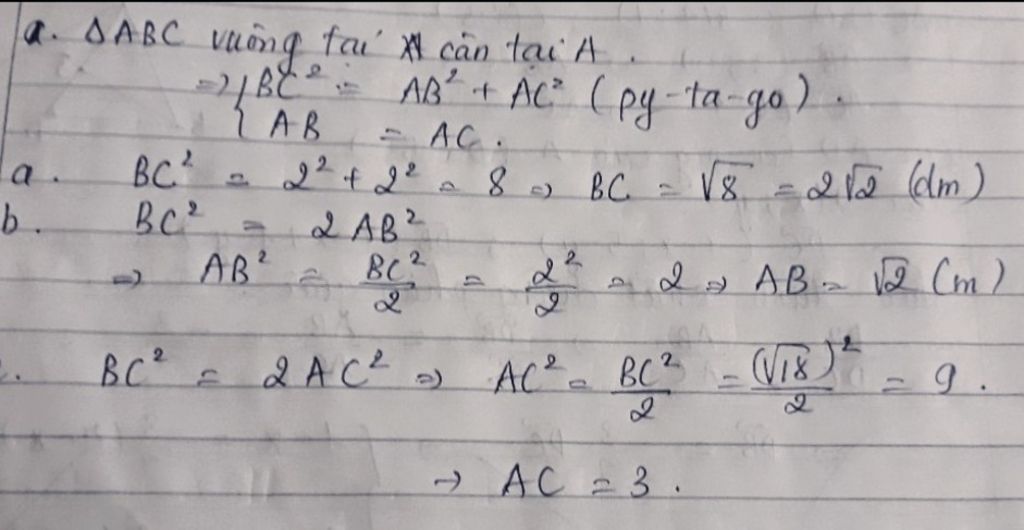 a. ΔABC vuông tại cân tại A.
=> { BC² = AB² + AC² (py-ta-go).
AB = AC.
a. BC² = 2² + 2² = 8 => BC = √8 = 2√2 (dm)
b. BC² = 2AB²
=> AB² = BC²/2 = 2²/2 = 2 => AB = √2 (m)
. BC² = 2AC² => AC² = BC²/2 = (√18)²/2 = 9.
→ AC = 3.